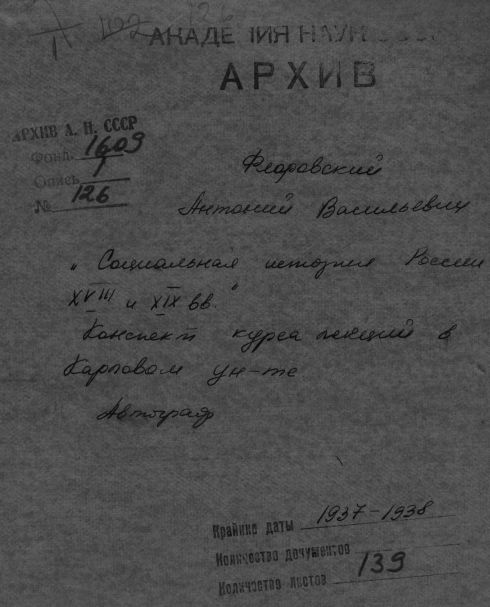 АКАДЕМИЯ НАУК СССР
АРХИВ
АРХИВ А. Н. СССР
Фонд 1609
Опись 1
№ 126
Флоровский
Антоний Васильевич
„Социальная история России
XVIII и XIX вв."
Конспект курса лекций в
Карловом ун-те
Автограф
Крайние даты 1937-1938
Количество документов
Количество листов 139